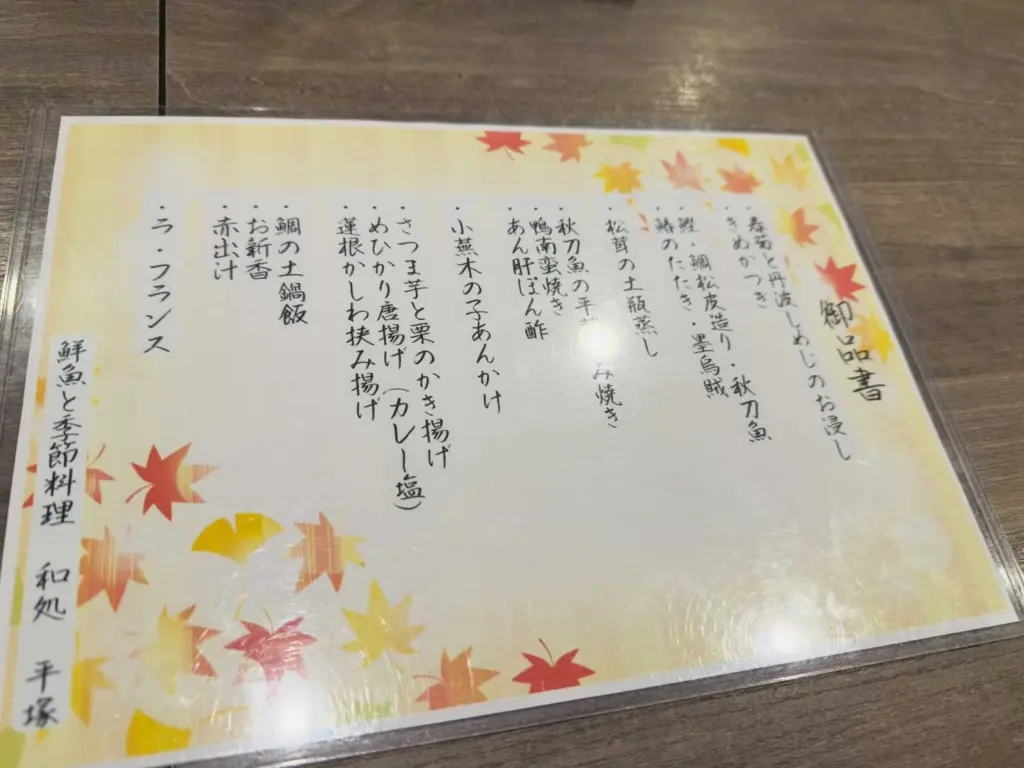 御品書
・春菊と丹波しめじのお浸し
・きぬかつぎ
・鰹・鯛松皮造り・秋刀魚
・鰆のたたき・墨烏賊
・松茸の土瓶蒸し
・秋刀魚の平 み焼き
・鴨南蛮焼き
・あん肝ぽん酢
・小蕪木の子あんかけ
・さつま芋と栗のかき揚げ
・めひかり唐揚げ(カレー塩)
・蓮根かしわ挟み揚げ
・鯛の土鍋飯
・お新香
・赤出汁
・ラ・フランス
鮮魚と季節料理 和処 平塚